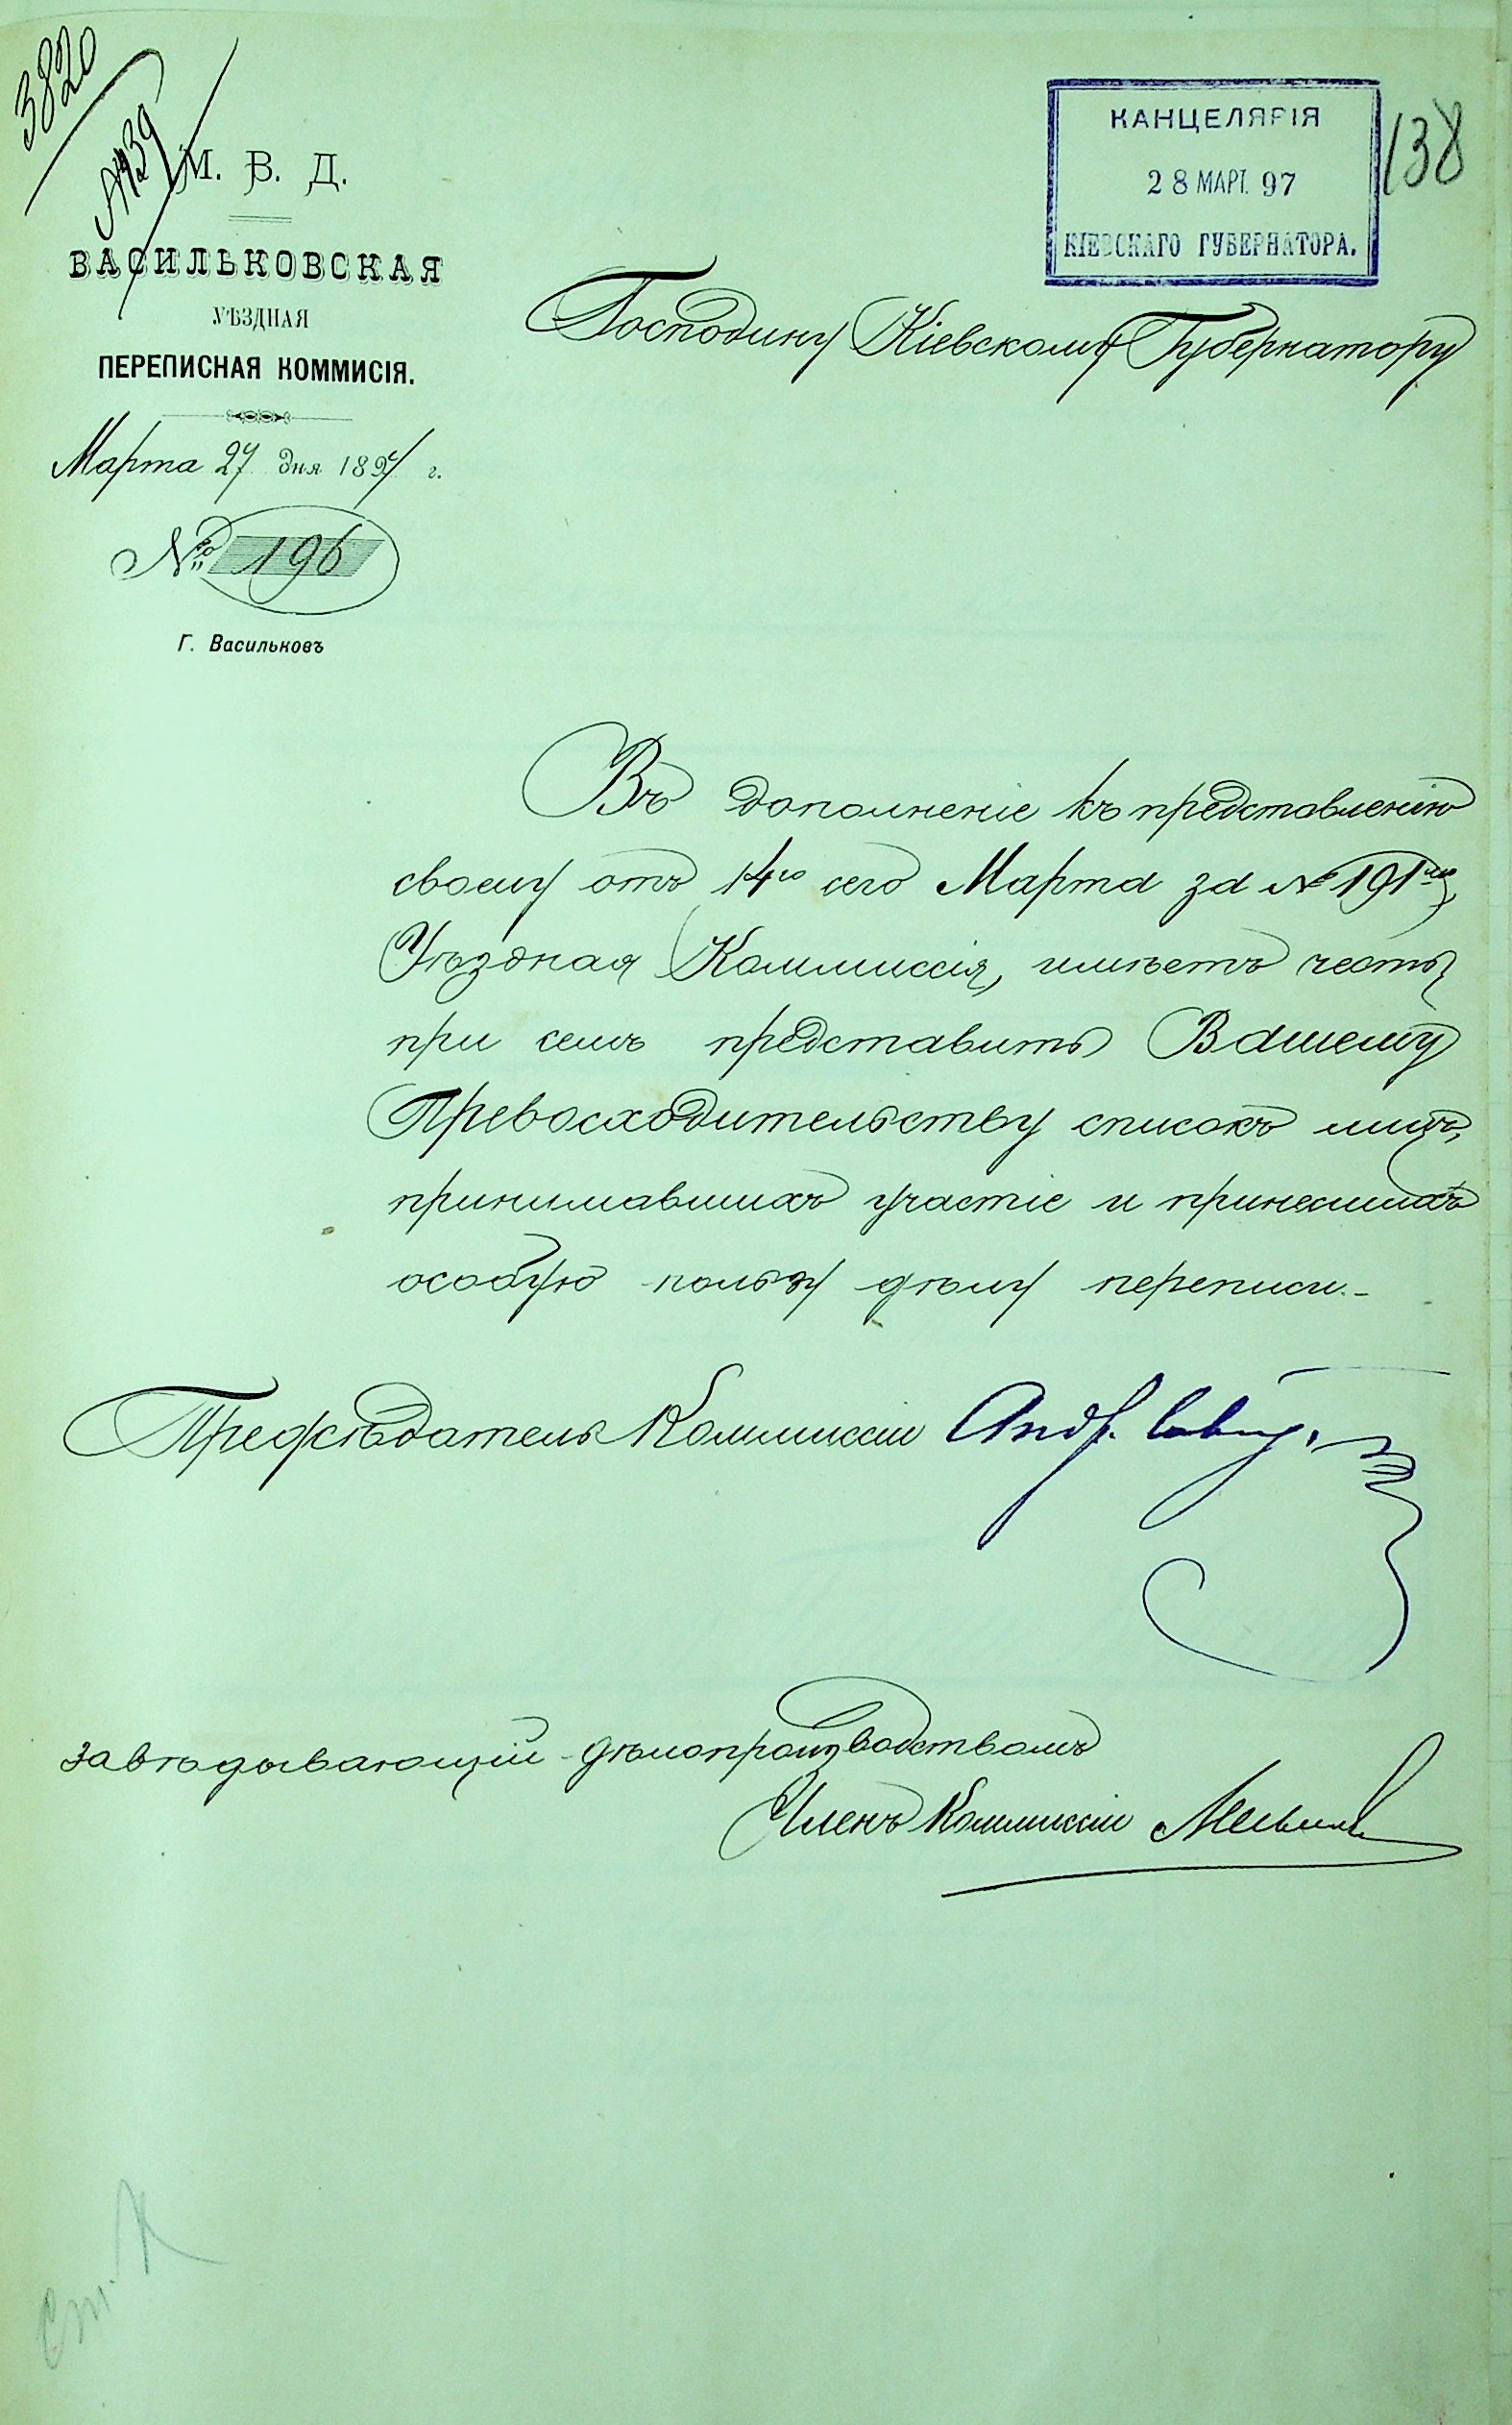 3820
М. В. Д.
ВАСИЛЬКОВСКАЯ
УѢЗДНАЯ
ПЕРЕПИСНАЯ КОММИСІЯ.
Марта 27 дня 1897 г.
№ 196
Г. Васильковъ
КАНЦЕЛЯРІЯ
28 МАРТ. 97
КІЕВСКАГО ГУБЕРНАТОРА.
138
Господину Кіевскому Губернатору
Въ дополненіе къ представленію
своему отъ 14го сего Марта за № 191мъ,
Уѣздная Коммиссія, имѣетъ честь
при семъ представить Вашему
Превосходительству списокъ лицъ,
принимавшихъ участіе и принесшихъ
особую пользу дѣлу переписи.-
Предсѣдатель Коммиссіи
Завѣдывающій дѣлопроизводствомъ
Членъ Коммиссіи